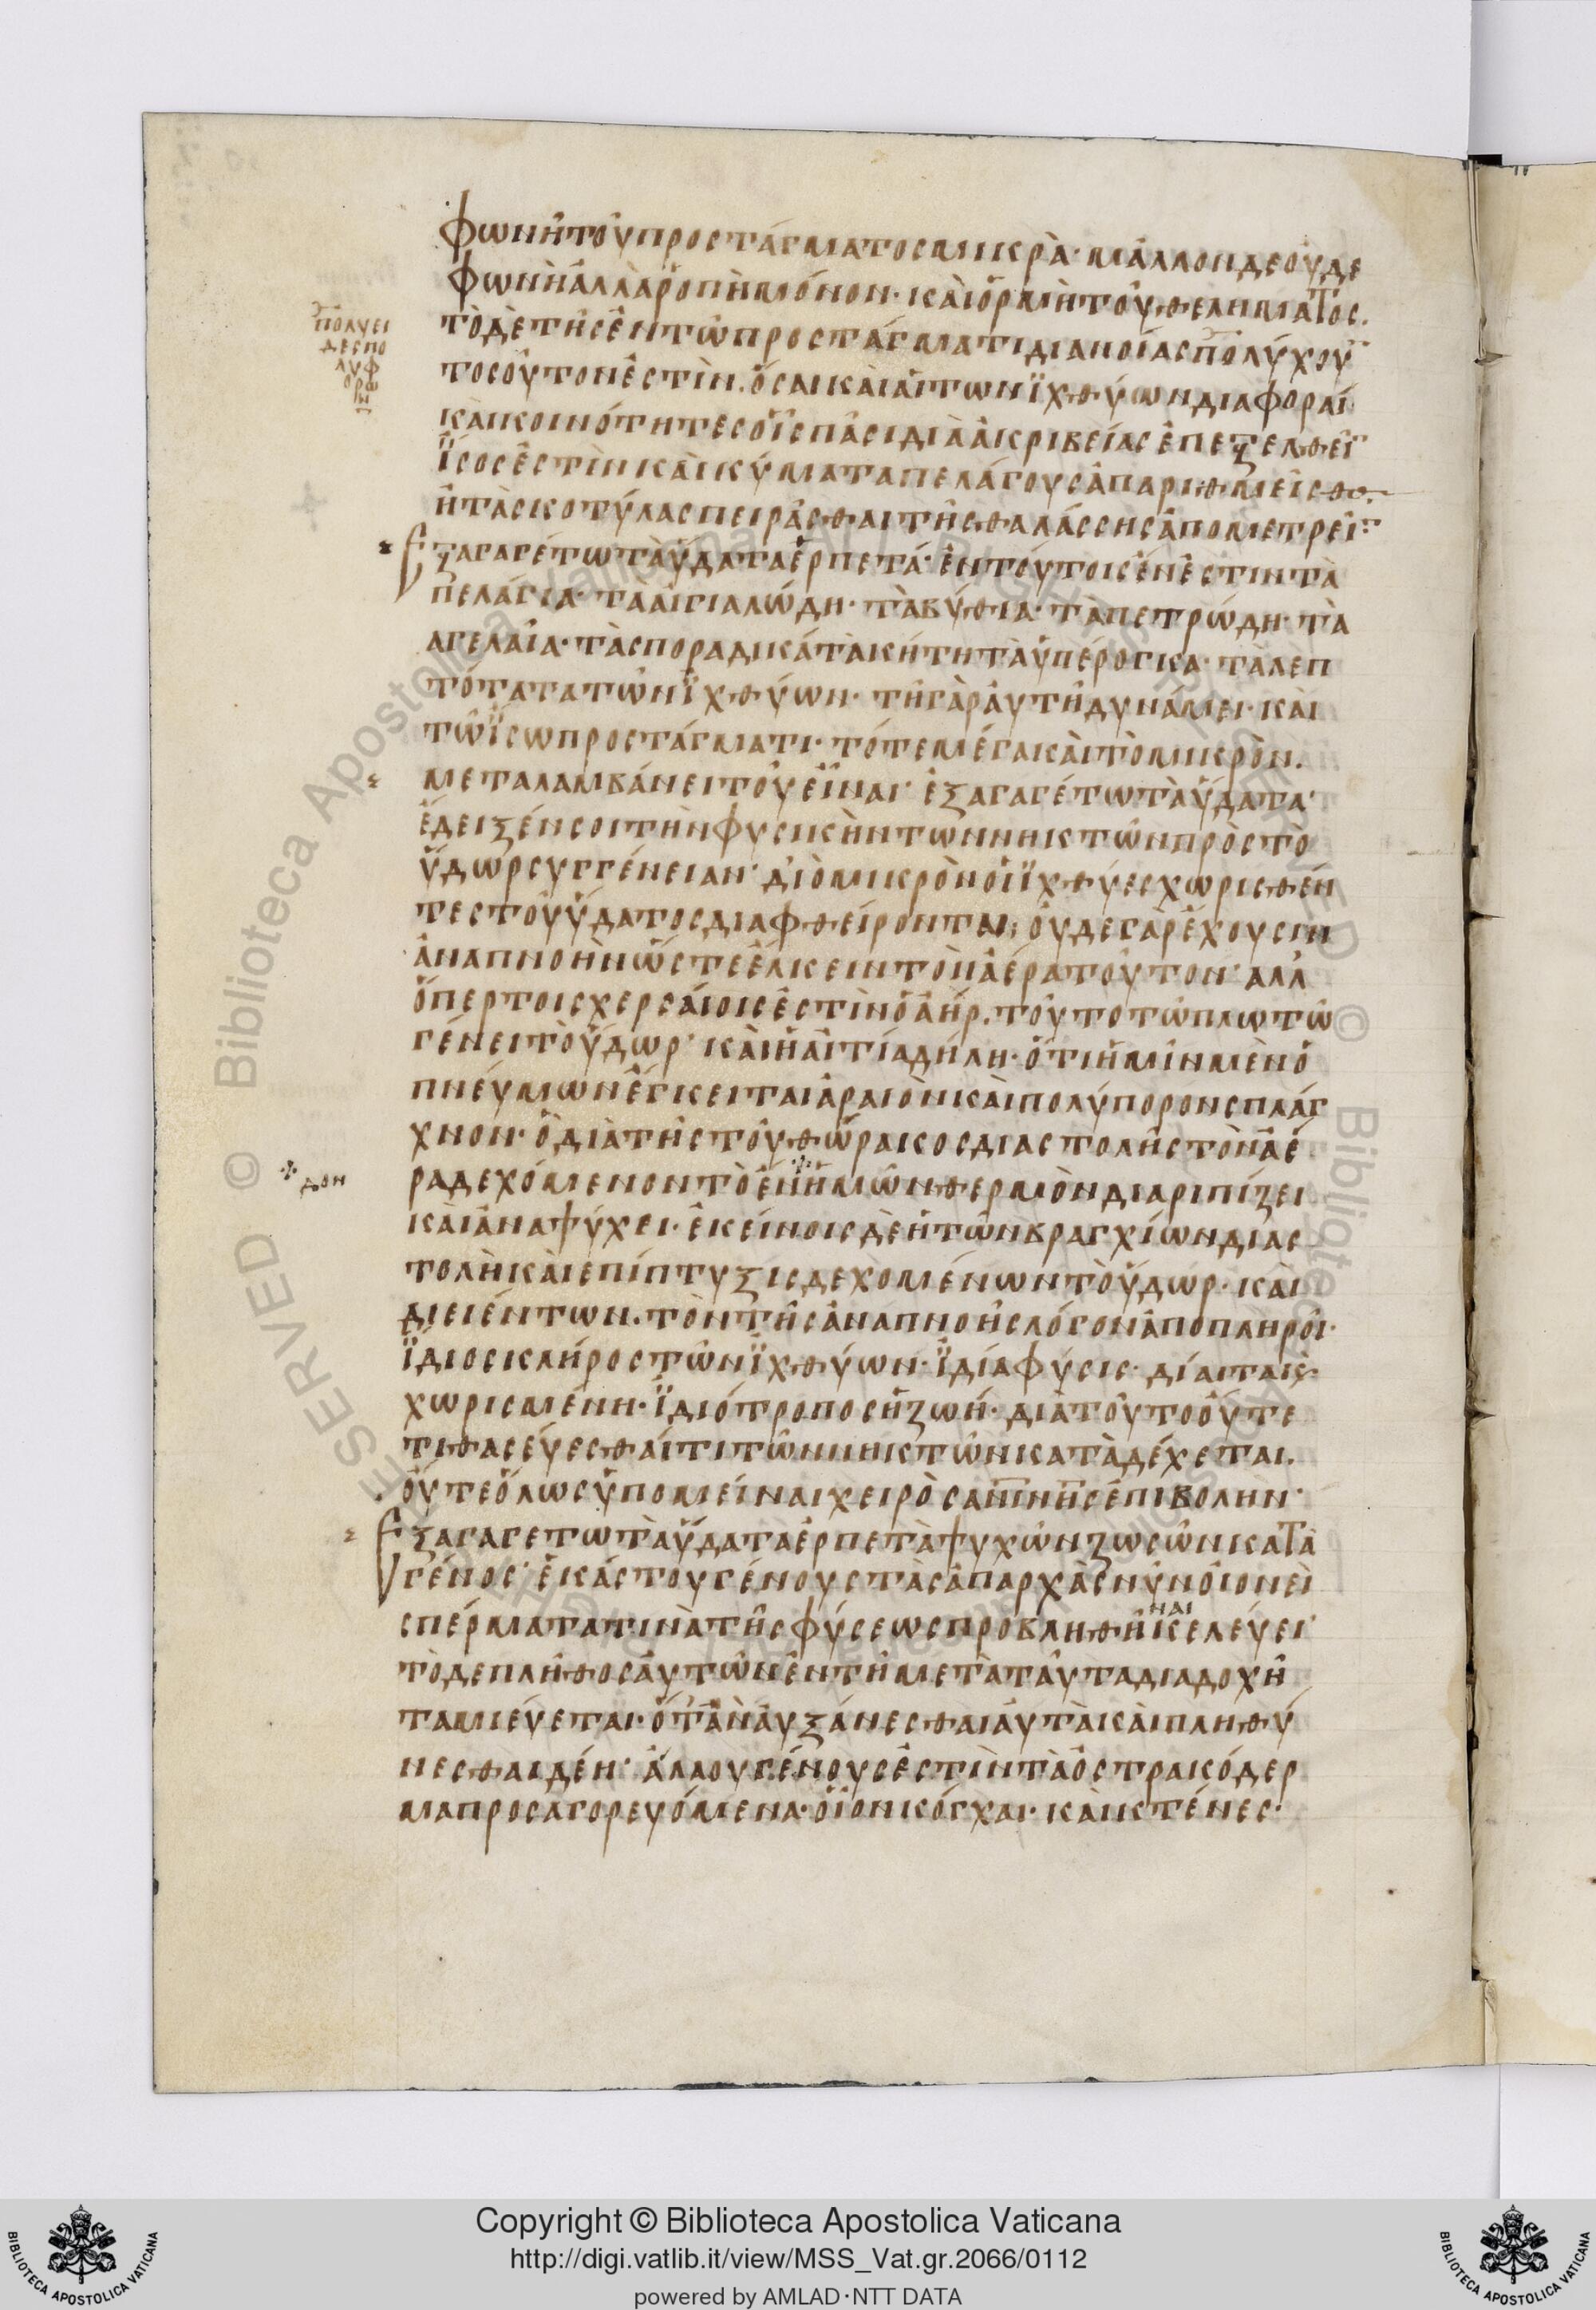 φωνὴ τοῦ προστάγματος μικρά· μᾶλλον δε οὐδε
φωνὴ ἀλλὰ ῥοπὴ μόνον· καὶ ὁρμὴ τοῦ θεληματος.
τὸ δὲ τῆς ἐν τῷ προστάγματι διανοίας πολύχου
τοσοῦτον ἐστὶν. ὅσαι καὶ αἱ των ϊχθύων διαφοραί
καὶ κοινότητες οἷς πᾶσι δι ἀκριβείας ἐπεξελθεῖ
ΐσος ἐστὶν καὶ κύματα πελάγους ἀπαριθμεῖσθ
ἢ τὰς κοτύλας πειρᾶσθαι τῆς θαλάσσης ἀπομετρεῖ
ἐξαγαγέτω τὰ ὕδατα ἑρπετά· ἐν τούτοις ἔνεστιν τὰ
πελάγια· τα αἰγιαλώδη· τὰ βύθια· τὰ πετρώδη· τὰ
αγελαῖα· τὰ σποραδικά τὰ κήτη τὰ ὑπέρογκα· τὰ λεπ
τότατα τῶν ϊχθύων· τῇ γὰρ αὐτῇ δυνάμει· καὶ
τῷ ΐσω προστάγματι· τό τε μέγα καὶ τὸ μικρὸν.
μεταλαμβάνει τοῦ εἶναι· ἐξαγαγέτω τὰ ὕδατα·
ἔδειξέν σοι τὴν φυσικὴν των νηκτῶν πρὸς τὸ
ὕδωρ συγγένειαν· διὸ μικρὸν οἱ ϊχθύες χωρισθέν
τες τοῦ ὕδατος διαφθείρονται; οὐδε γὰρ ἔχουσιν
ἀναπνοὴν ὥστε ἕλκειν τὸν ἀέρα τοῦτον· αλλ
ὅπερ τοις χερσαίοις ἐστὶν ὁ ἀήρ. τοῦτο τῷ πλωτῷ
γένει τὸ ὕδωρ· καὶ ἡ αἰτία δήλη· ὅτι ἡμῖν μὲν ὁ
πνεύμων ἔγκειται ἀραιὸν καὶ πολύπορον σπλάγ
χνον· ὃ διὰ τῆς τοῦ θώρακος διαστολῆς τὸν ἀέ
ρα δεχόμενον τὸ ἔν ἡμῶν θερμὸν διαριπίζει
καὶ ἀναψύχει· ἐκείνοις δὲ ἡ τῶν βραγχίων διας
τολὴ καὶ επίπτυξις δεχομένων τὸ ὕδωρ· καὶ
διειέντων. τὸν τῆς ἀναπνοῆς λόγον ἀποπληροῖ·
ΐδιος κλήρος τῶν ϊχθύων· ϊδία φύσις· δίαιτα ϊς
χωρισμένη· ϊδιότροπος ἡ ζωή· διὰ τοῦτο οὔτε
τιθασεύεσθαί τι τῶν νηκτῶν καταδέχεται.
οὔτε ὅλως ὑπομείναι χειρὸς ανης ἐπιβολην·
ἐξαγαγετω τὰ ὕδατα ἑρπετὰ ψυχῶν ζωσῶν κατὰ
γένος· ἑκάστου γένους τὰς ἀπαρχὰς νῦν οἱονεὶ
σπέρματα τινὰ τῆς φύσεως προβληθῆναι κελεύει·
τὸ δε πλῆθος αὐτῶν ἐν τῇ μετὰ ταῦτα διαδοχῇ
ταμιεύεται· ὅταν αὐξάνεσθαι αὐτὰ καὶ πληθύ
νεσθαι δέη· ἄλλου γένους ἐστὶν τὰ ὀστρακόδερ
μα προσαγορευόμενα· οἷον κόγχαι· καὶ κτένες·
πολυει
δες πο
λυφ
ορω
δον
Copyright © Biblioteca Apostolica Vaticana
http://digi.vatlib.it/view/MSS_Vat.gr.2066/0112
powered by AMLAD·NTT DATA
BIBLIOTECA APOSTOLICA VATICANA
BIBLIOTECA APOSTOLICA VATICANA